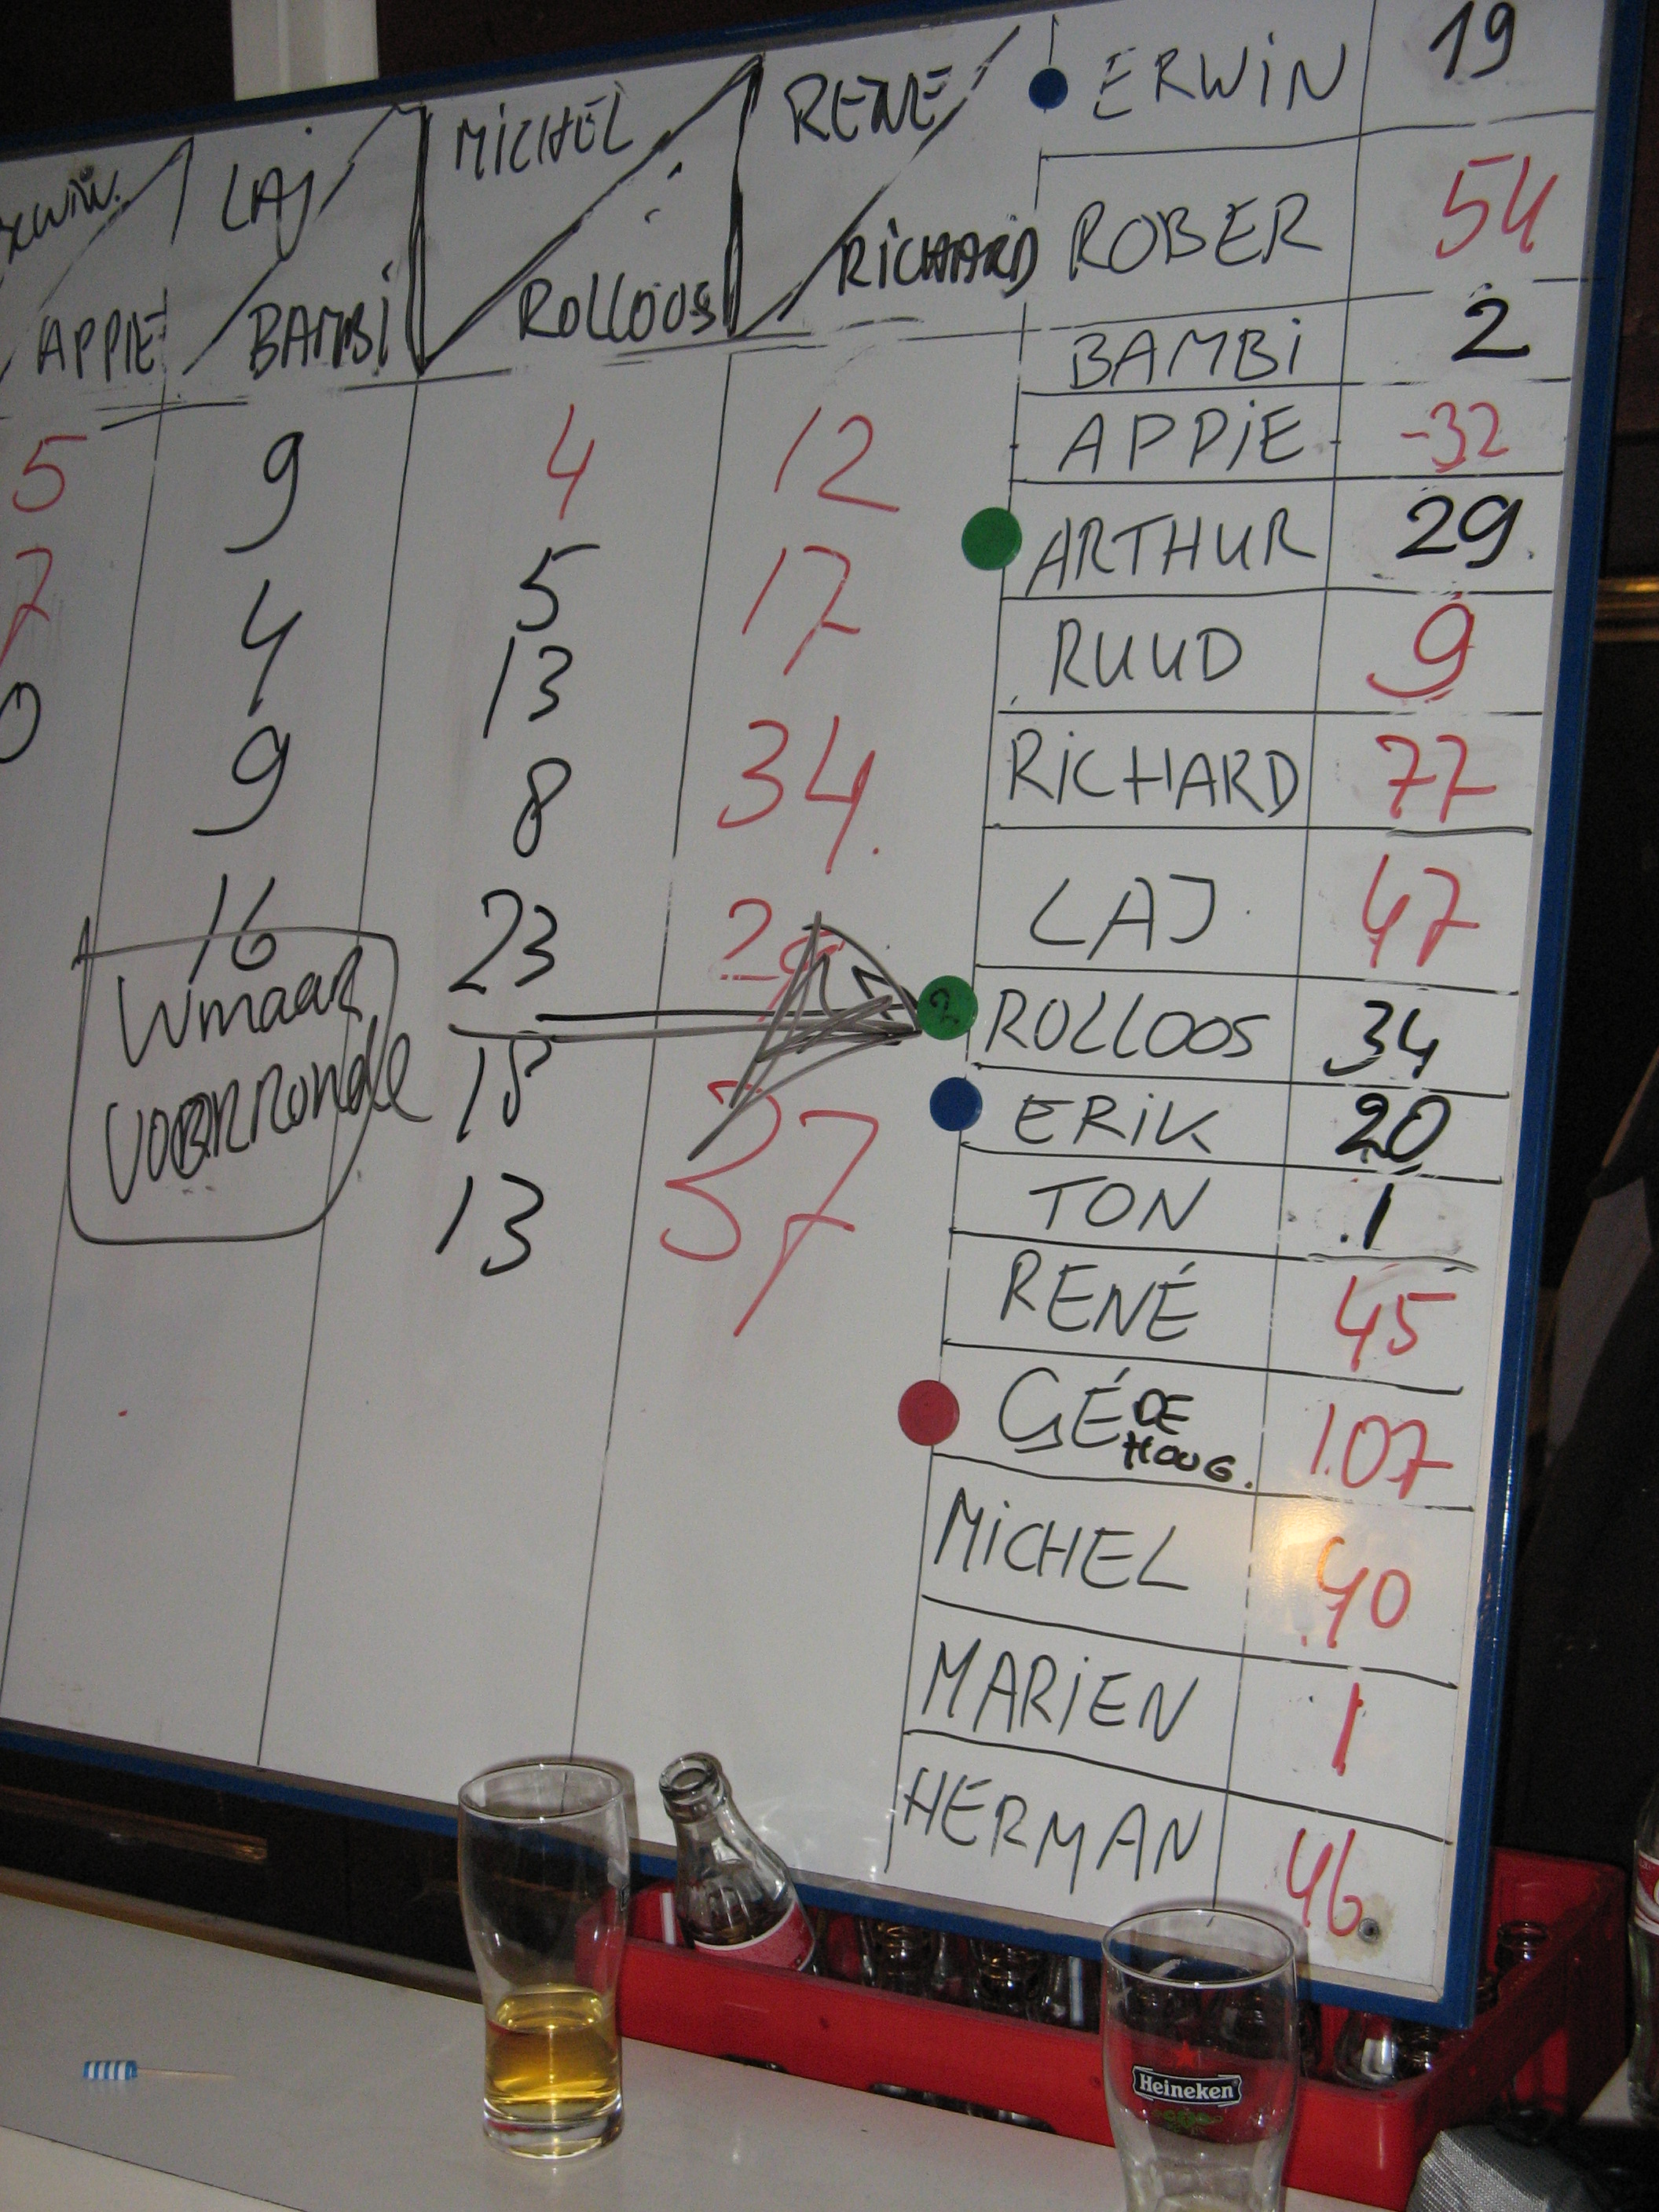 LAJ MICHEL RENE ERWIN 19
APPIE BAMBI ROLLOOS RICHARD ROBER 54
BAMBI 2
5 9 4 12 APPIE -32
7 4 5 17 ARTHUR 29
RUUD 9
0 9 13 34 RICHARD 77
8
16 23 LAJ 47
ROLLOOS 34
VOORRONDE 18 37 ERIK 20
13 TON 1
RENÉ 45
GÉ DE HOUG. 107
MICHEL 40
MARIEN 1
HERMAN 46
Heineken